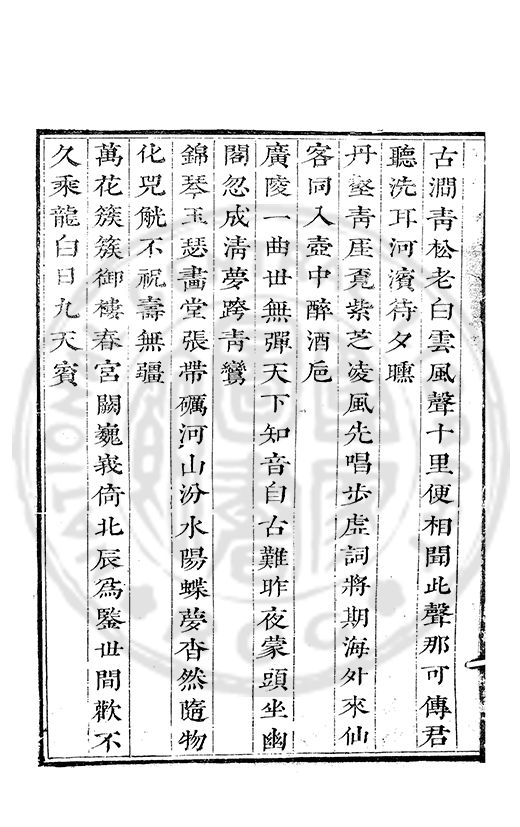 古澗靑松老白雲風聲十里便相聞此聲那可傳君
聽洗耳河濱待夕曛
丹壑靑厓覓紫芝凌風先唱步虛詞將期海外來仙
客同入壺中醉酒巵
廣陵一曲世無彈天下知音自古難昨夜蒙頭坐幽
閣忽成淸夢跨靑鸞
錦琴玉瑟畵堂張帶礪河山汾水陽蝶夢杳然隨物
化兕觥不祝壽無疆
萬花簇簇御樓春宮闕巍峩倚北辰爲鑒世間歡不
久乘龍白日九天賓